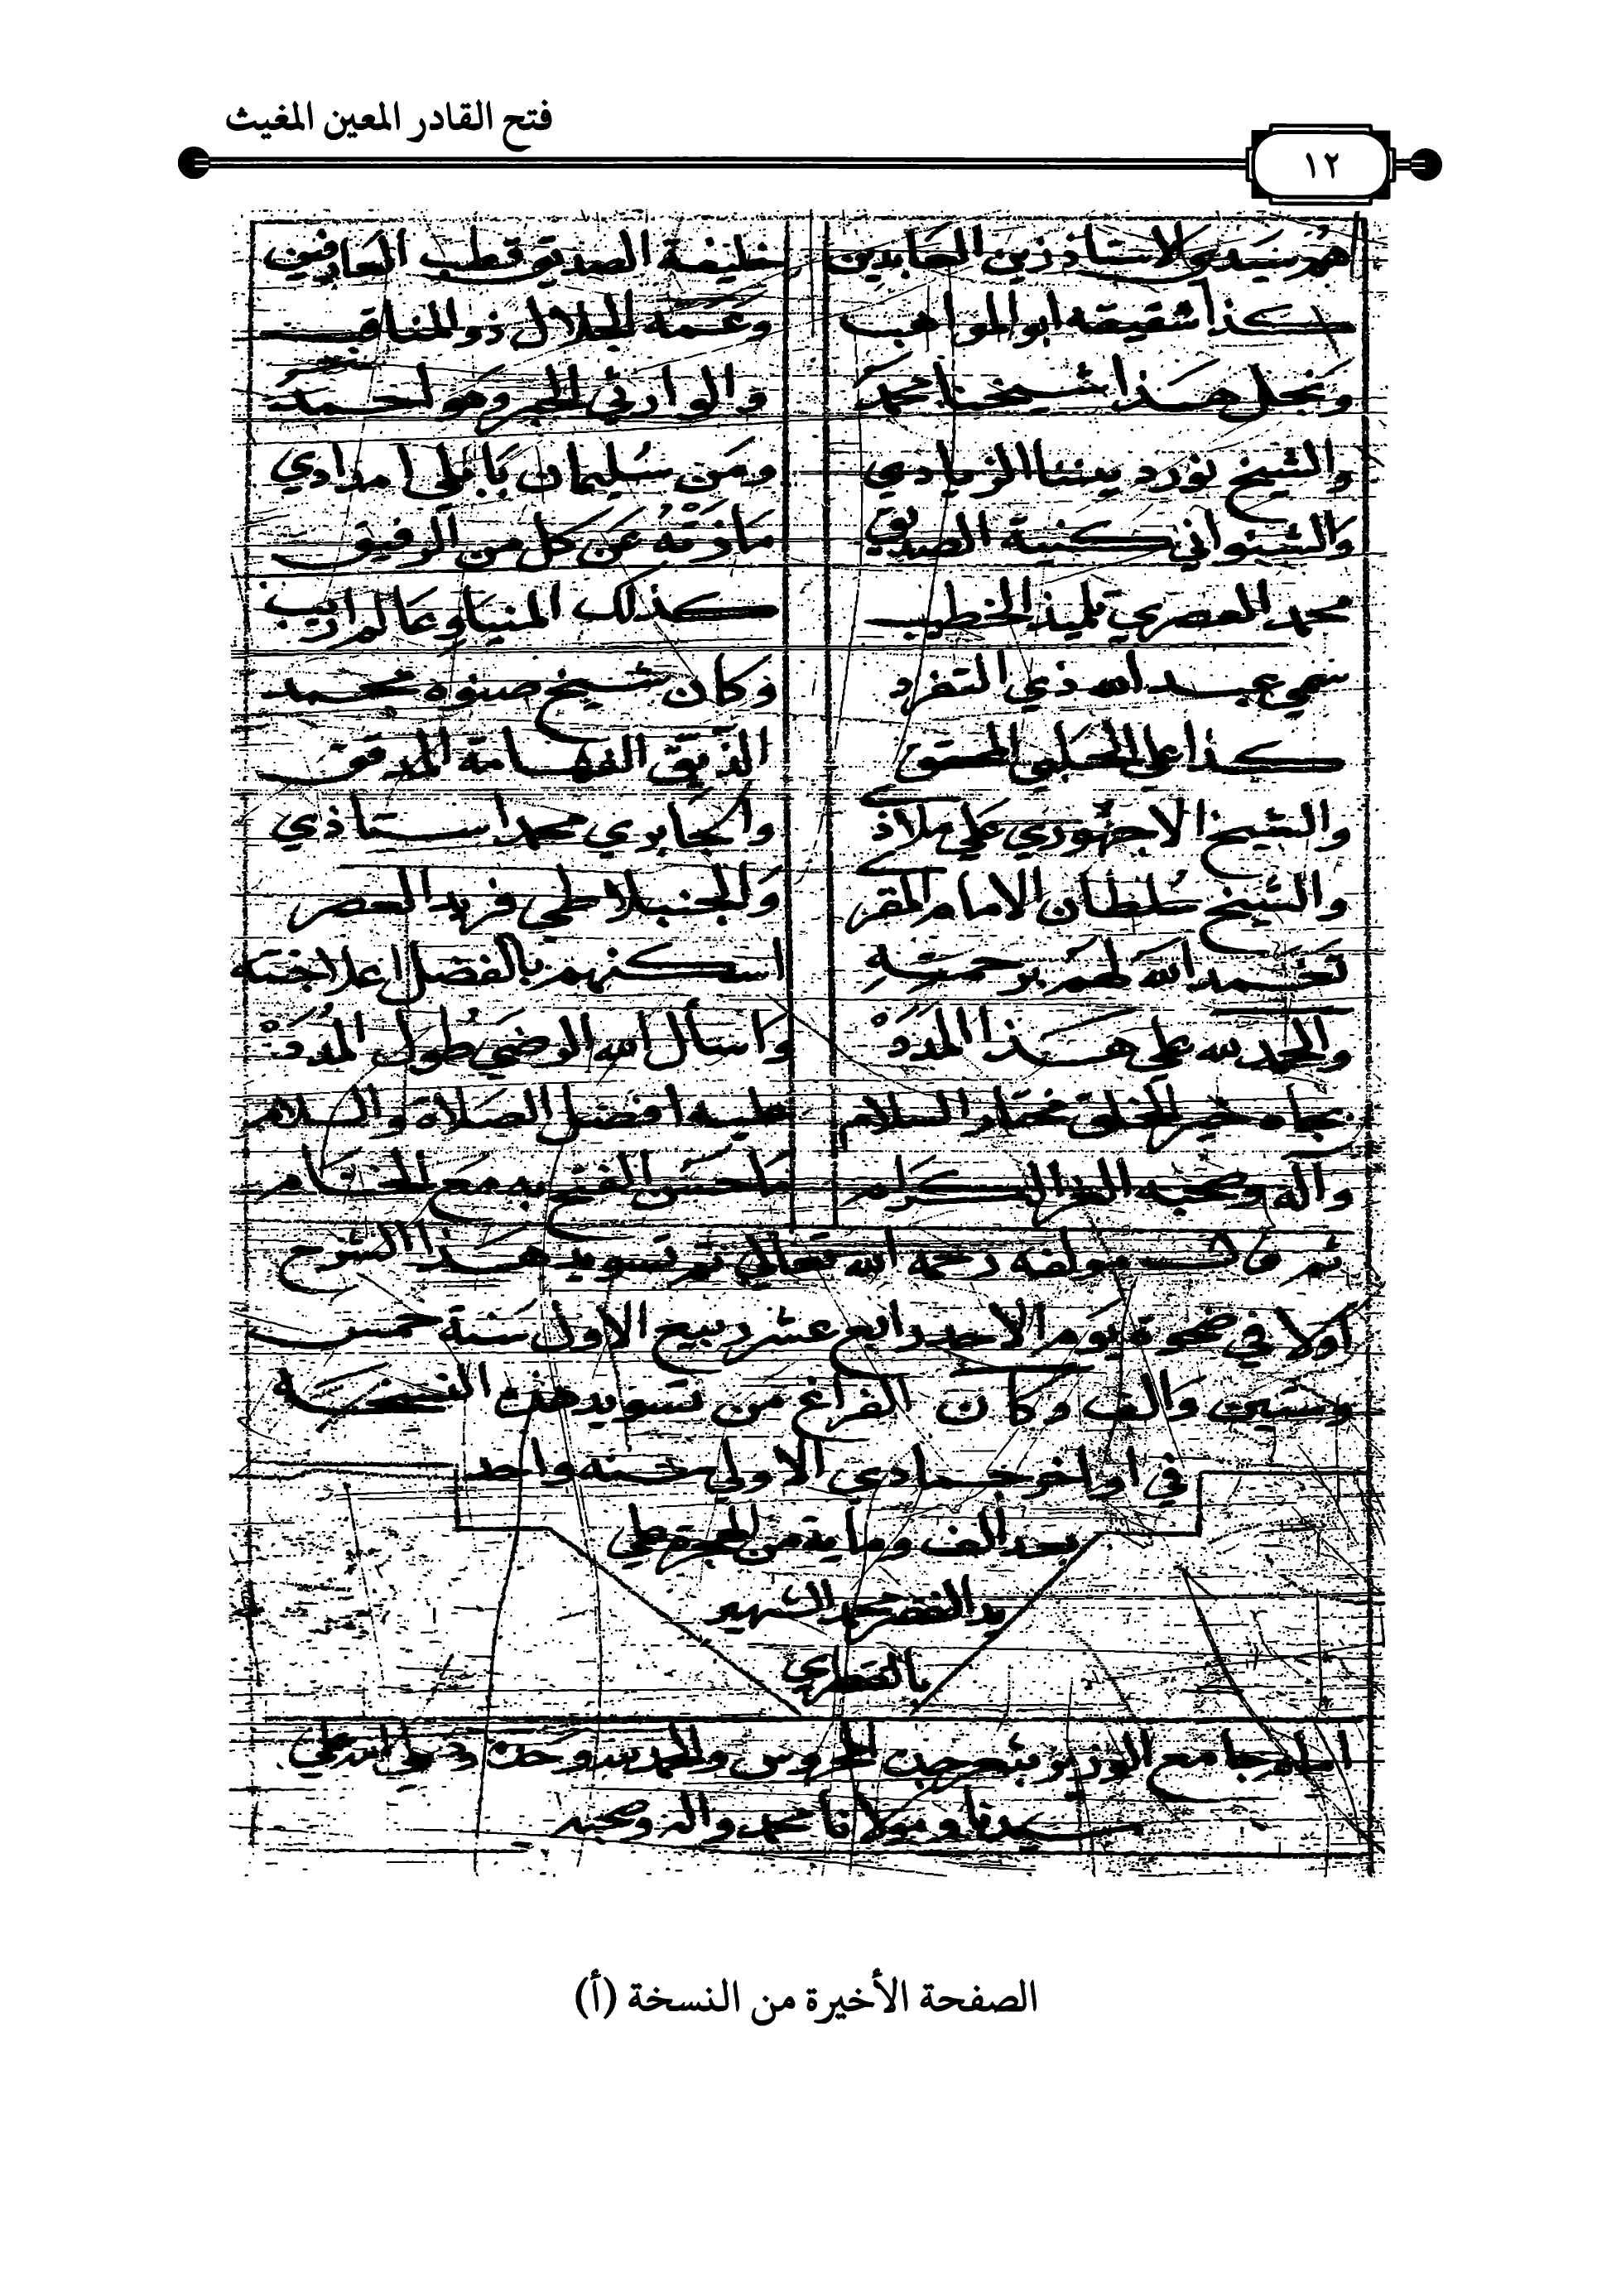 فتح القادر المعين المغيث
١٢
هم سيدي الاستاذ زين العابدين خليفة الصديق قطب العارفين
كذا شقيقه ابو المواهب وعمه الجلال ذو المناقب
ونجل هذا شيخنا محمد والوارثي الحبر وهو احمد
والشيخ نور ديننا الزيادي ومن سليمان بابلي امدادي
والشنواني كنية الصديق
محمد القصري تلميذ الخطيب كذلك المنياوي عالم اريب
سمي عبد الله ذي التفرد وكان شيخ صنوه محمد
كذا علي الحلبي المحقق الفهامة المدقق
والشيخ الاجهوري علي ملاذي والجابري محمد استاذي
والشيخ سلطان الامام المقري والجنبلاطي فريد العصر
تغمد الله لهم برحمته اسكنهم بالفضل اعلا جنته
والحمد لله على هذا المدد واسأل الله الرضي طول المدد
بجاه خير الخلق مختار السلام عليه افضل الصلاة والسلام
وآله وصحبه الغر الكرام ما حسن الفتح به مع الختام
ثم قال مولفه رحمه الله تعالى تم تسويد هذا الشرح
اولا في ضحوة يوم الاحد رابع عشر ربيع الاول سنة خمس
وستين والف وكان الفراغ من تسويد هذه النسخة
في اواخر جمادى الاولى سنة واحد
بعد الف وماية من الهجرة على
يد الفقير محمد الشهير
جامع الوزير المحروس والحمد لله وحده وصلى الله على
سيدنا ومولانا محمد واله وصحبه
الصفحة الأخيرة من النسخة (أ)